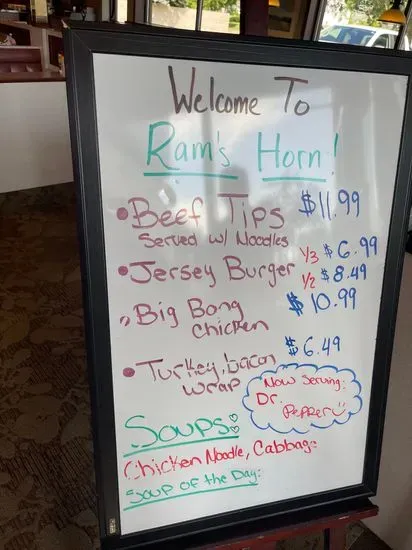 Welcome To
Ram's Horn!
• Beef Tips $11.99
Served w/ Noodles
• Jersey Burger 1/3 $6.99
1/2 $8.49
• Big Bong $10.99
Chicken
• Turkey, bacon $6.49
wrap
Now Serving:
Dr.
Pepper
Soups:
Chicken Noodle, Cabbage
Soup of the Day: